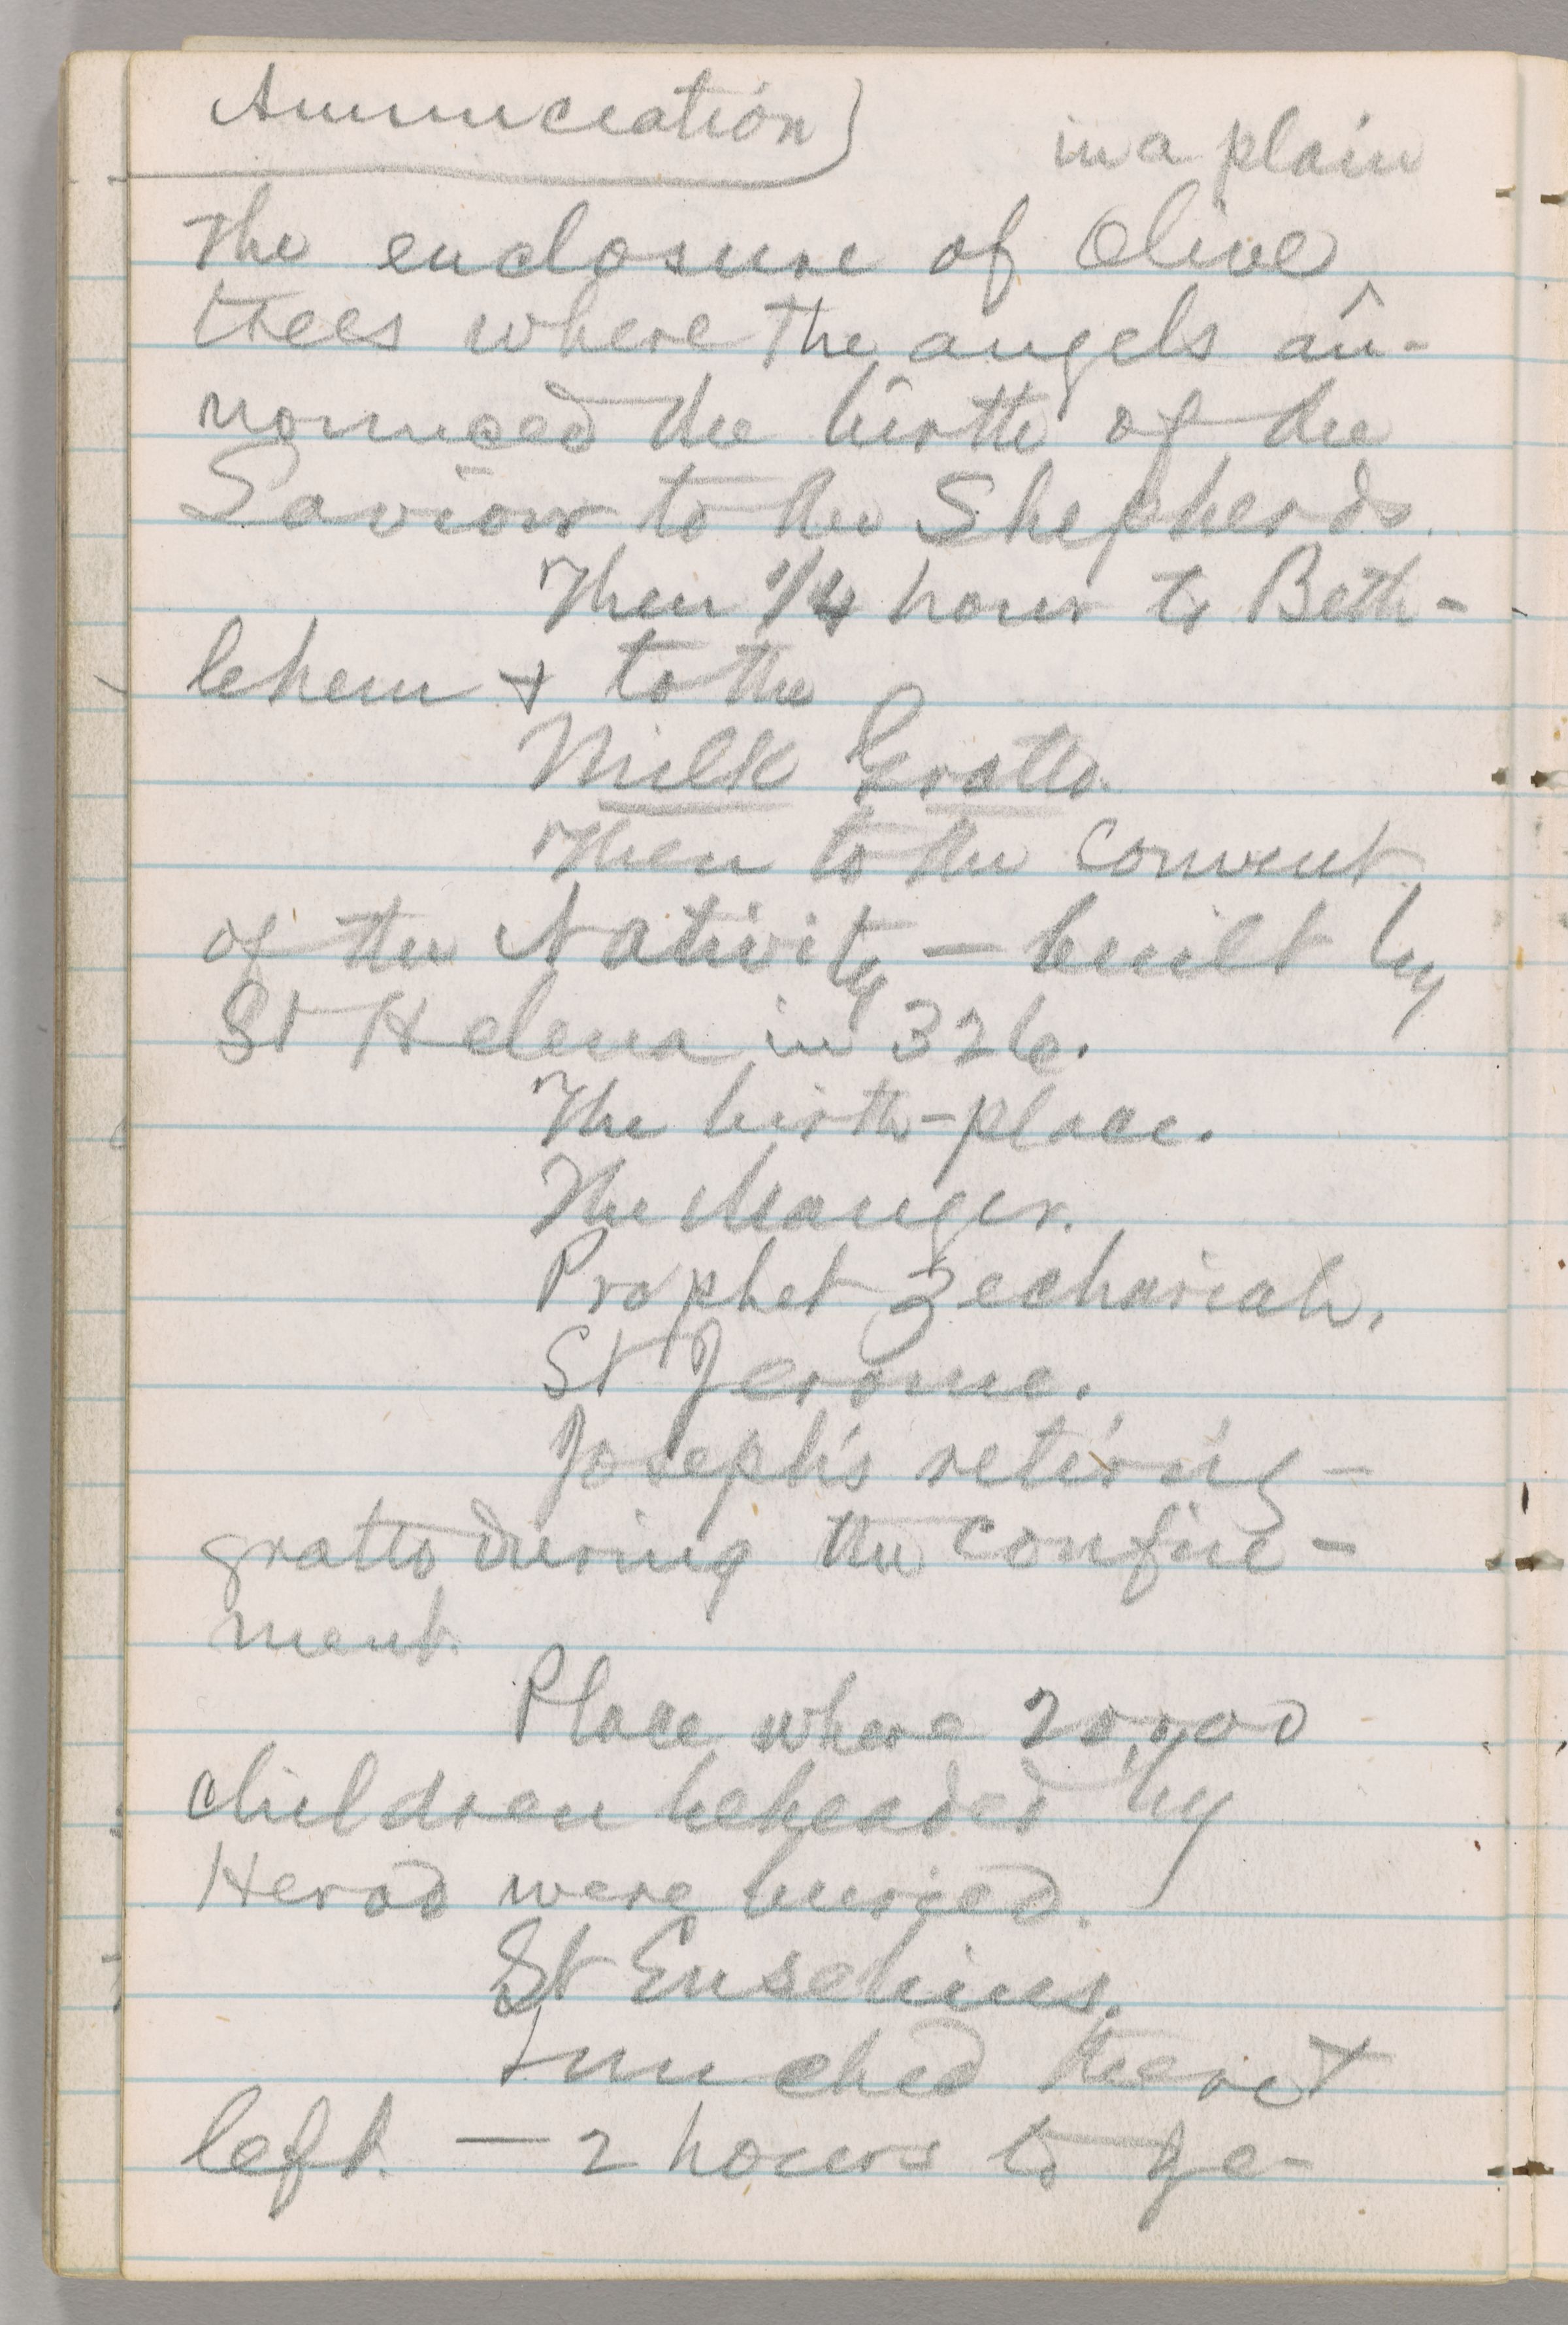 Annunciation)
in a plain
The enclosure of Olive
trees where the angels an-
nounced the birth of the
Saviour to the Shepherds.
Then 1/4 hour to Beth-
lehem + to the
Milk Grotto.
Then to the Convent
of the Nativity — built by
St Helena in 326.
The birth-place.
The Manger.
Prophet Zechariah.
St Jerome.
Joseph's retiring-
grotto during the confine-
ment.
Place where 20,000
children beheaded by
Herod were buried.
St Eusebius.
Lunched there +
left. — 2 hours to Je-